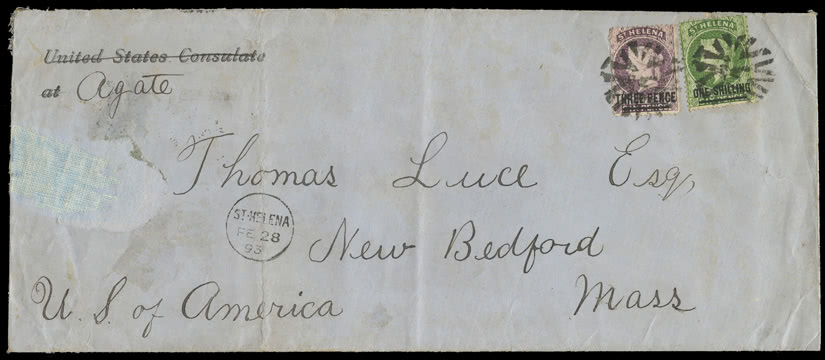 ST HELENA
THREE PENCE
ST HELENA
ONE SHILLING
United States Consulate
at Agate
Thomas Luce Esq,
ST. HELENA
FE 28
93
New Bedford
U. S. of America Mass